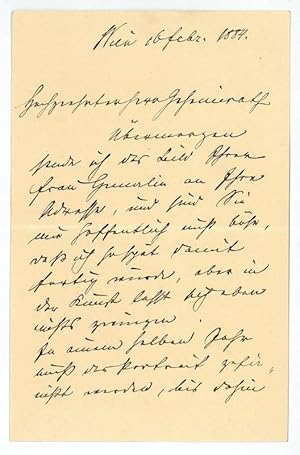 Wien 16 Febr. 1884.
Hochgeehrter Herr Geheimrath
Übermorgen
sende ich das Bild Ihrer
Frau Gemalin an Ihre
Adresse, und sind Sie
mir hoffentlich nicht böse,
daß ich so spät damit
fertig wurde, aber in
der Kunst lässt sich eben
nichts zwingen.
In einem halben Jahr
muß das Portrait gefir-
nißt werden, bis dahin